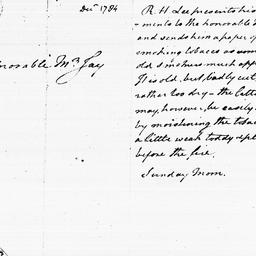 Decr 1784
norable Mr Jay
R. H. Lee presents his
ments to the honorable
and sends him a paper of
smoking tobacco as
old smokers much app
It is old, but, badly cut
rather too dry - the latter
may, however, be easily
by moistening the toba
a little weak toddy &
before the fire.
Sunday Morn.